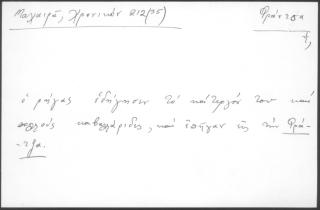 Μαχαιρᾶ, Χρονικόν 212(35)
Φράντσα
f,
ὁ ρήγας ὁδήγησεν τὸ κάτεργόν του καὶ
πολλοὺς καβαλλάριδες, καὶ ἐπῆγαν εἰς τὴν Φρά-
-τζα.